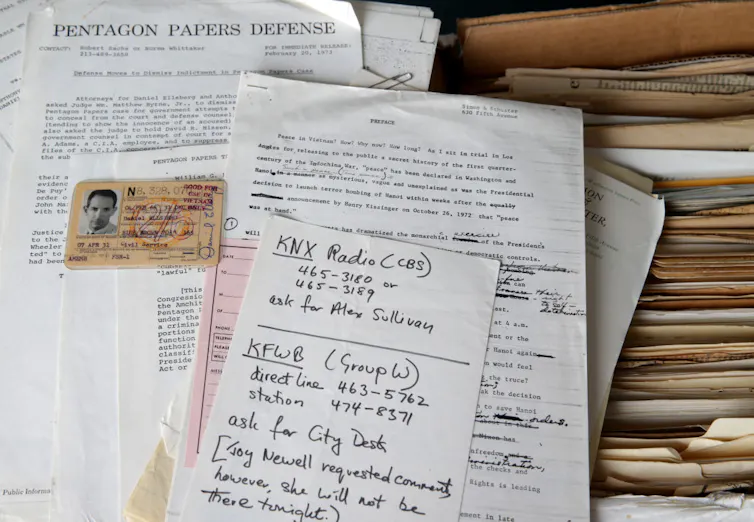 PENTAGON PAPERS DEFENSE
CONTACT: Robert Sachs or Norma Whittaker
FOR IMMEDIATE RELEASE:
Defense Moves to Dismiss Indictment in Pentagon Papers Case
Attorneys for Daniel Ellsberg and Antho
asked Judge Wm. Matthew Byrne, Jr., to dismis
Pentagon Papers case for government attempts t
to conceal from the court and defense counsel
(tending to show the innocence of an accused)
also asked the judge to hold David R. Nissen,
government counsel in contempt of court for a
A. Adams, a C.I.A. employe, and to suppress
files of the C.I.A.
the sub
PENTAGON PAPERS T
their a
evidence
De Puy'
order o
John Mar
with the
Justice
to the J
Wheeler
ted" to
had been
"lawful" fu
[This
Congression
the Archit
Pentagon
under the
a crimina
portions
function
authorit
classif
Preside
Act or
Public Informa
GOOD FOR
USE OF
VIETNAM
ONLY
Daniel
07 APR 31
Civil Service
Simon & Schuster
630 Fifth Avenue
PREFACE
Peace in Vietnam? How? Why now? How long? As I sit in trial in Los
Angeles for releasing to the public a secret history of the first quarter-
century of the Indochina War, "peace" has been declared in Washington and
Hanoi in a manner as mysterious, vague and unexplained as was the Presidential
decision to launch terror bombing of Hanoi within weeks after the equally
announcement by Henry Kissinger on October 26, 1972 that "peace
was at hand."
has dramatized the monarchial exercise of the President's
or democratic controls.
can
at 4 a.m.
ment or the
Hanoi again
on would feel
the truce?
ak the decision
to save Hanoi
orders.
about in this
Nixon has
freedom
administration,
the checks and
Rights is leading
ement in late
KNX Radio (CBS)
465-3180 or
465-3189
ask for Alex Sullivan
KFWB (Group W)
direct line 463-5762
station 474-8371
ask for City Desk
[Joy Newell requested comment,
however, she will not be
there tonight.)